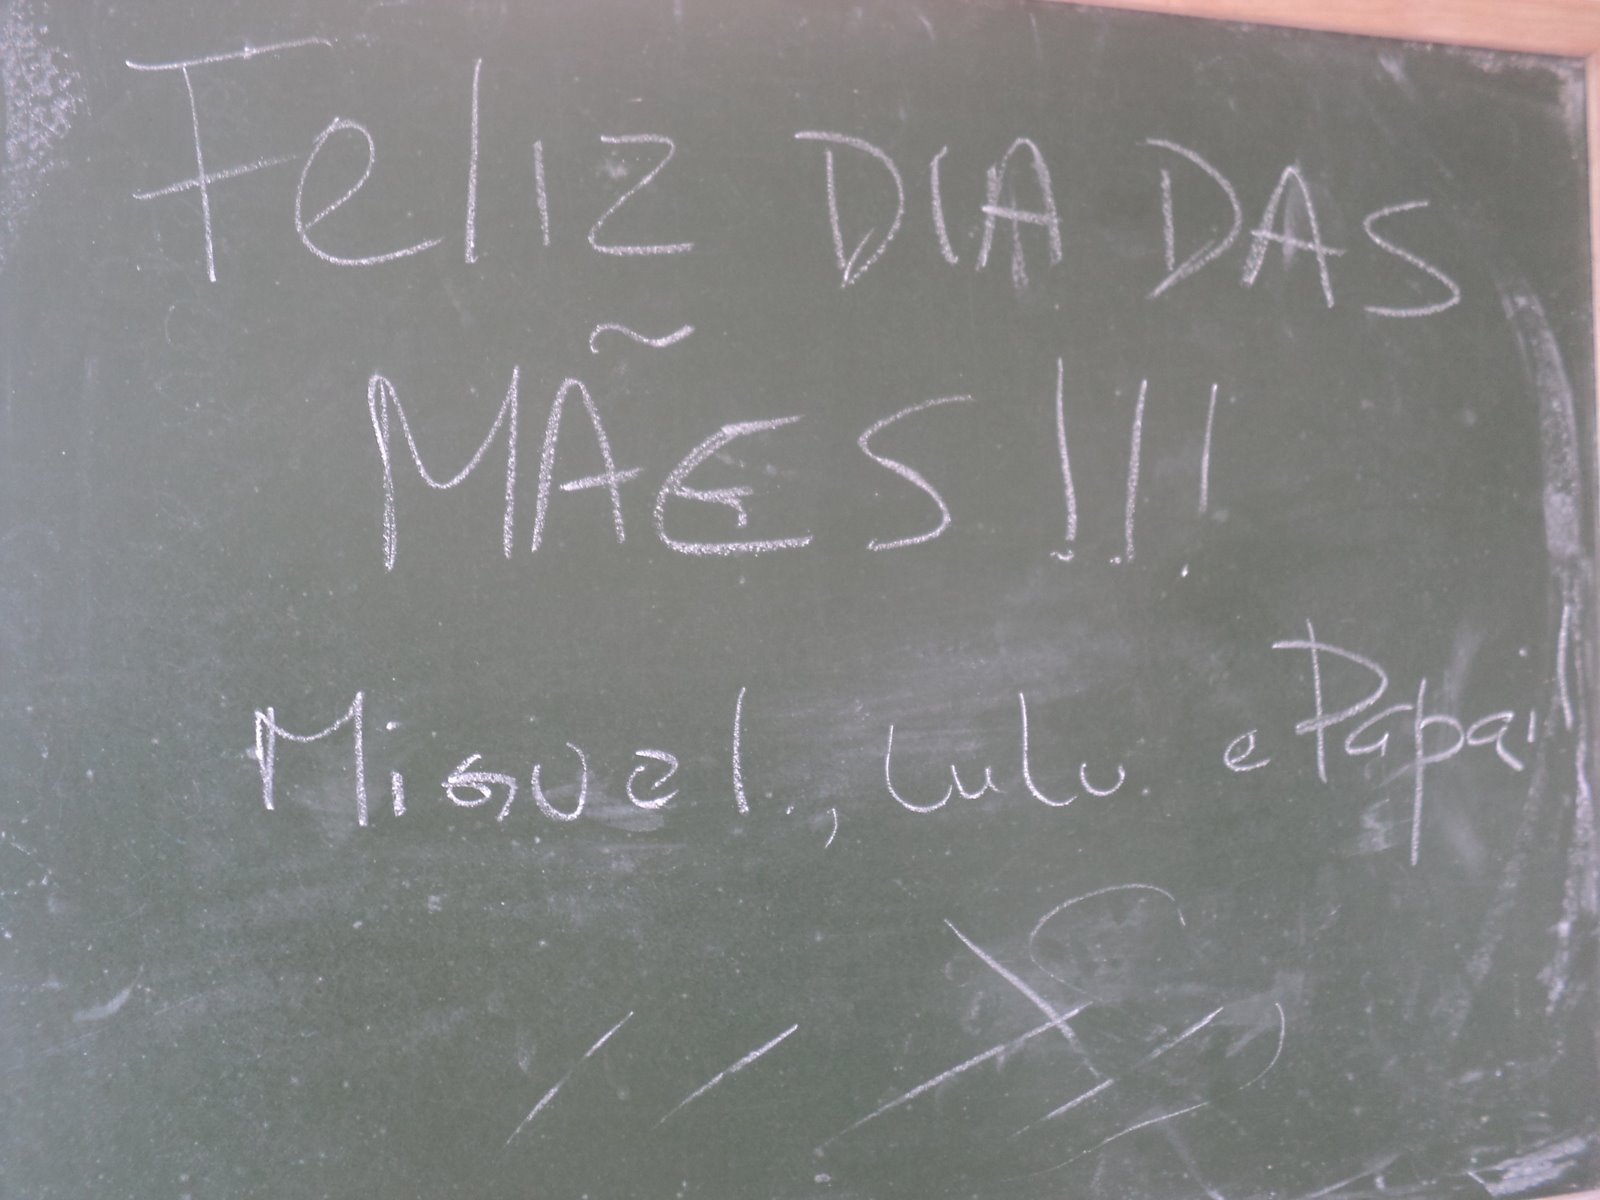 Feliz DIA DAS
MÃES!!!
Miguel, Lulu e Papai!